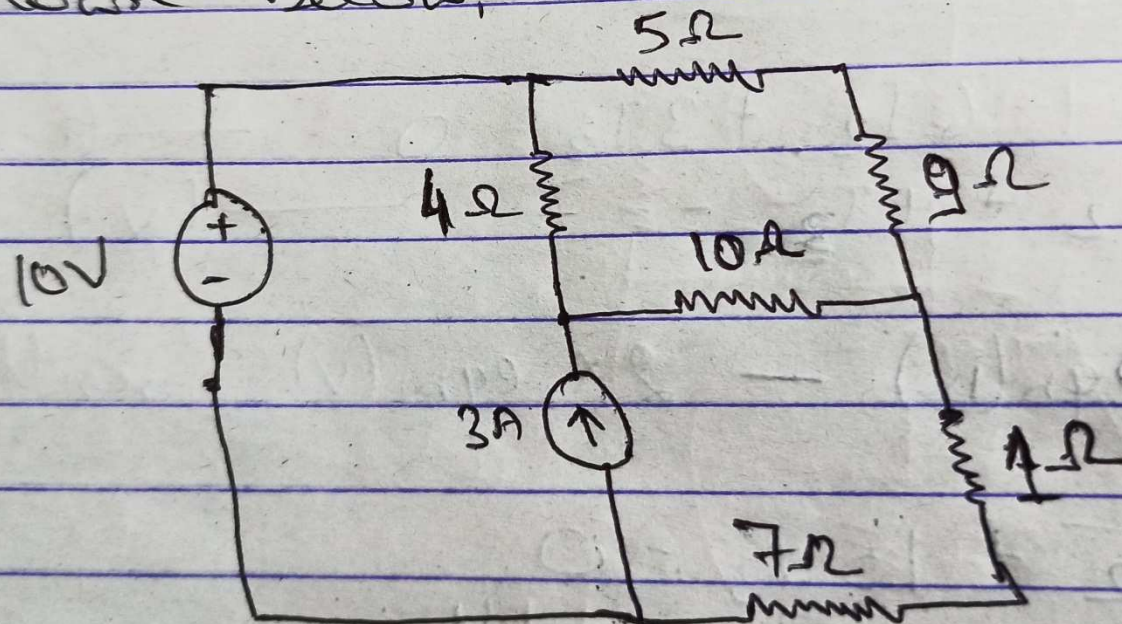 5Ω
4Ω
9Ω
10V
+
-
10Ω
3A
1Ω
7Ω